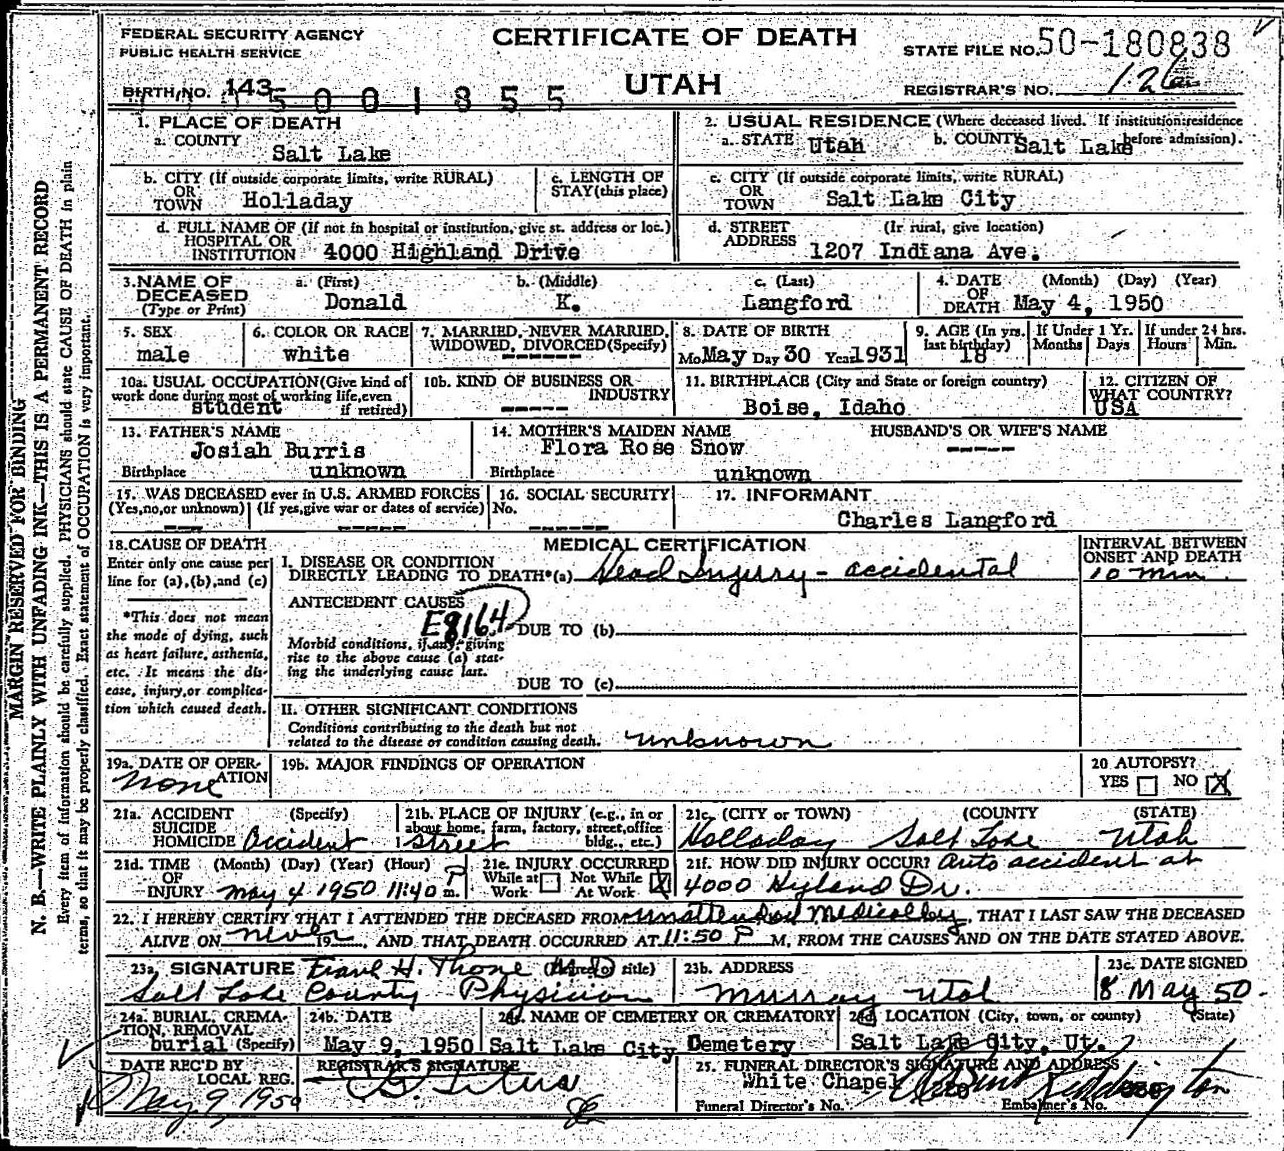 FEDERAL SECURITY AGENCY
PUBLIC HEALTH SERVICE
CERTIFICATE OF DEATH
UTAH
STATE FILE NO. 50-180838
REGISTRAR'S NO. 126
BIRTH NO. 143
5001855
1. PLACE OF DEATH
a. COUNTY
Salt Lake
2. USUAL RESIDENCE (Where deceased lived. If institution: residence before admission).
a. STATE Utah b. COUNTY Salt Lake
b. CITY (If outside corporate limits, write RURAL)
OR
TOWN Holladay
c. LENGTH OF
STAY (this place)
c. CITY (If outside corporate limits, write RURAL)
OR
TOWN Salt Lake City
d. FULL NAME OF (If not in hospital or institution, give st. address or loc.)
HOSPITAL OR
INSTITUTION 4000 Highland Drive
d. STREET (If rural, give location)
ADDRESS 1207 Indiana Ave.
3. NAME OF
DECEASED
(Type or Print)
a. (First)
Donald
b. (Middle)
K.
c. (Last)
Langford
4. DATE (Month) (Day) (Year)
OF
DEATH May 4, 1950
5. SEX
male
6. COLOR OR RACE
white
7. MARRIED, NEVER MARRIED,
WIDOWED, DIVORCED (Specify)
------
8. DATE OF BIRTH
Mo. May Day 30 Year 1931
9. AGE (In yrs.
last birthday)
18
If Under 1 Yr.
Months Days
If under 24 hrs.
Hours Min.
10a. USUAL OCCUPATION (Give kind of
work done during most of working life, even
if retired)
student
10b. KIND OF BUSINESS OR
INDUSTRY
-----
11. BIRTHPLACE (City and State or foreign country)
Boise, Idaho
12. CITIZEN OF
WHAT COUNTRY?
USA
13. FATHER'S NAME
Josiah Burris
Birthplace unknown
14. MOTHER'S MAIDEN NAME
Flora Rose Snow
Birthplace unknown
HUSBAND'S OR WIFE'S NAME
-----
15. WAS DECEASED ever in U.S. ARMED FORCES
(Yes, no, or unknown) (If yes, give war or dates of service)
--- -----
16. SOCIAL SECURITY
No.
------
17. INFORMANT
Charles Langford
18. CAUSE OF DEATH
Enter only one cause per
line for (a), (b), and (c)
*This does not mean
the mode of dying, such
as heart failure, asthenia,
etc. It means the dis-
ease, injury, or complica-
tion which caused death.
MEDICAL CERTIFICATION
I. DISEASE OR CONDITION
DIRECTLY LEADING TO DEATH* (a) Head Injury - accidental
INTERVAL BETWEEN
ONSET AND DEATH
10 min.
ANTECEDENT CAUSES
E8164
DUE TO (b)
Morbid conditions, if any, giving
rise to the above cause (a) stat-
ing the underlying cause last.
DUE TO (c)
II. OTHER SIGNIFICANT CONDITIONS
Conditions contributing to the death but not
related to the disease or condition causing death. unknown
19a. DATE OF OPER-
ATION
None
19b. MAJOR FINDINGS OF OPERATION
20 AUTOPSY?
YES ☐ NO ☒
21a. ACCIDENT (Specify)
SUICIDE
HOMICIDE Accident
21b. PLACE OF INJURY (e.g., in or
about home, farm, factory, street, office
bldg., etc.)
street
21c. (CITY OR TOWN) (COUNTY) (STATE)
Holladay Salt Lake Utah
21d. TIME (Month) (Day) (Year) (Hour)
OF
INJURY May 4 1950 11:40 P m.
21e. INJURY OCCURRED
While at Work ☐ Not While At Work ☒
21f. HOW DID INJURY OCCUR? Auto accident at
4000 Hyland Dr.
22. I HEREBY CERTIFY THAT I ATTENDED THE DECEASED FROM unattended medically, THAT I LAST SAW THE DECEASED
ALIVE ON never 19 , AND THAT DEATH OCCURRED AT 11:50 P M, FROM THE CAUSES AND ON THE DATE STATED ABOVE.
23a. SIGNATURE Frank H. Thone M.D. (Degree or title)
Salt Lake County Physician
23b. ADDRESS
Murray Utah
23c. DATE SIGNED
8 May 50
24a. BURIAL, CREMA-
TION, REMOVAL
burial (Specify)
24b. DATE
May 9, 1950
24c. NAME OF CEMETERY OR CREMATORY
Salt Lake City Cemetery
24d. LOCATION (City, town, or county) (State)
Salt Lake City, Ut.
DATE REC'D BY
LOCAL REG.
May 9, 1950
REGISTRAR'S SIGNATURE
25. FUNERAL DIRECTOR'S SIGNATURE AND ADDRESS
White Chapel
Funeral Director's No. Embalmer's No.
MARGIN RESERVED FOR BINDING
N. B.—WRITE PLAINLY WITH UNFADING INK—THIS IS A PERMANENT RECORD
Every item of information should be carefully supplied. PHYSICIANS should state CAUSE OF DEATH in plain
terms, so that it may be properly classified. Exact statement of OCCUPATION is very important.